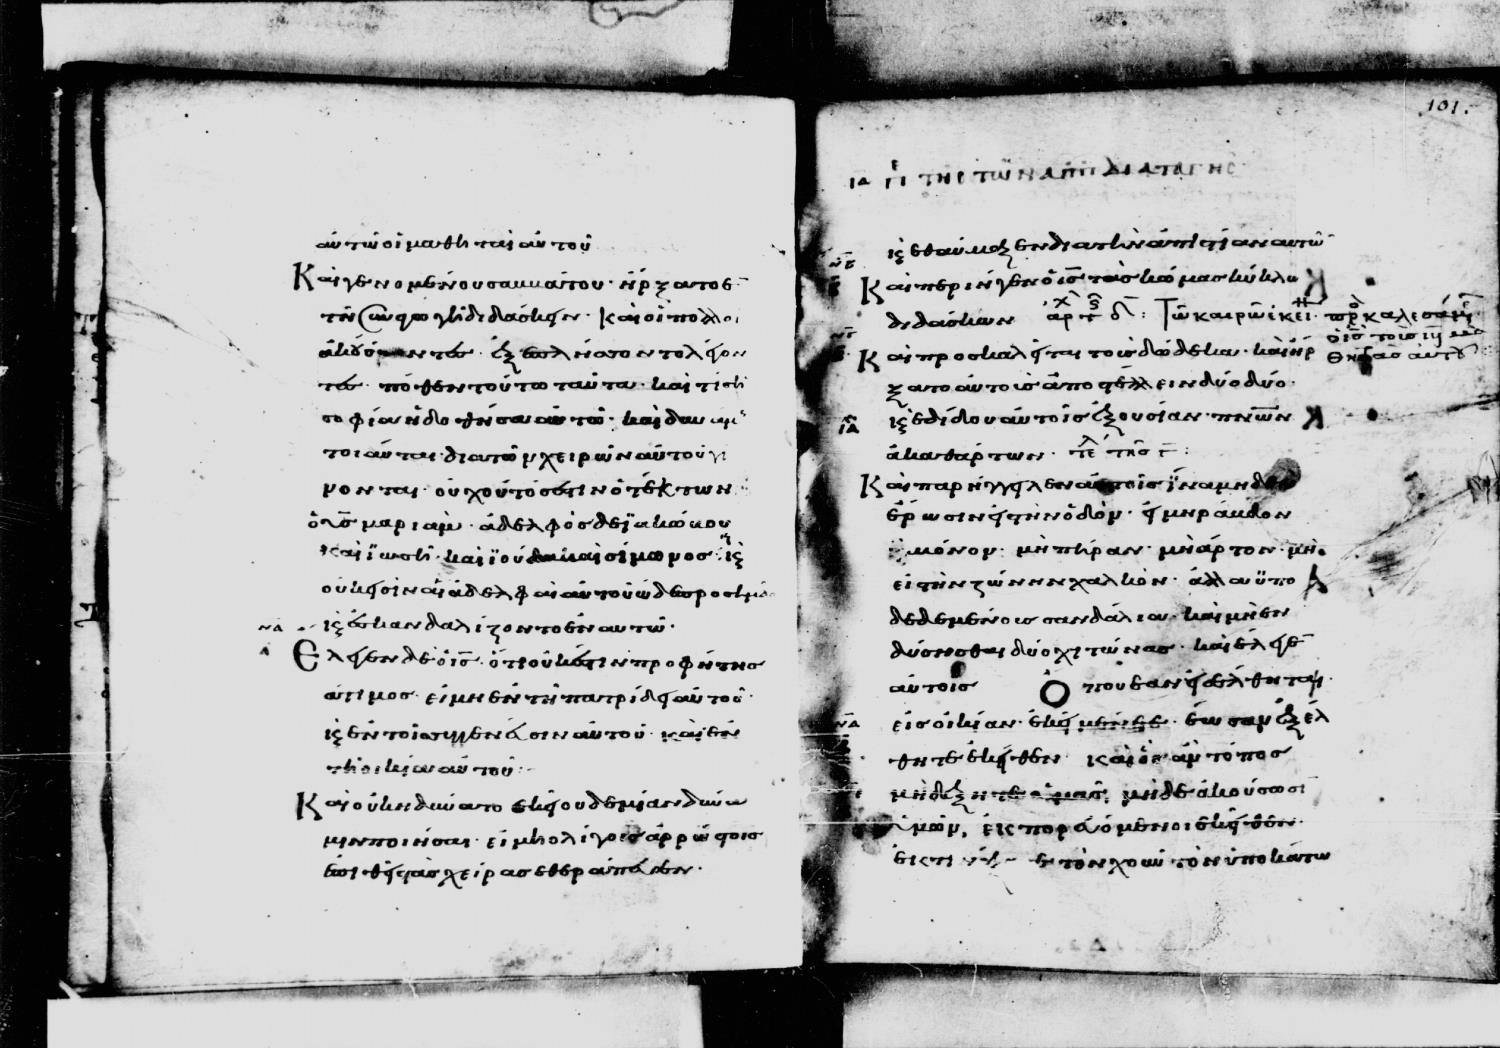 αὐτῶ οἱ μαθηταὶ αὐτοῦ
Καὶ γενομένου σαββάτου· ἤρξατο ἐν
τῆ συναγωγῆ διδάσκειν· Καὶ οἱ πολλοὶ
ἀκούσαντες· ἐξεπλήσσοντο λέγον
τες· πόθεν τούτω ταῦτα· καὶ τίς ἡ
σοφία ἡ δοθήσα αὐτῶ· καὶ δυνάμεις
τοιαῦται διὰ τῶν χειρῶν αὐτοῦ γί
νονται· οὐχ οὗτός ἐστιν ὁ τέκτων
ὁ υἱς μαρίας· ἀδελφὸς δὲ ἰακώβου
καὶ ἰωσῆ· καὶ ἰούδα καὶ σίμωνος· κ
οὐκ εἰσὶν αἱ ἀδελφαὶ αὐτοῦ ὧδε πρὸς ἡμᾶς
κ ἐσκανδαλίζοντο ἐν αυτῶ·
Ελεγεν δὲ ὁ ις· ὅτι οὐκ ἔστιν προφήτης
ἄτιμος· εἰ μὴ ἐν τῆ πατρίδι αὐτοῦ·
κ ἐν τοῖς συγγενέσιν αὐτοῦ· καὶ ἐν
τῆ οἰκία αὐτοῦ·
Καὶ οὐκ ἠδύνατο ἐκεῖ οὐδεμίαν δύνα
μιν ποιῆσαι· εἰ μὴ ὀλίγοις ἀρρώστοις
ἐπιθεὶς τὰς χεῖρας ἐθεράπευσεν·
101.
ΤΗΣ ΤΩΝ ΑΠΠ ΔΙΑΤΑΓΗΣ
κ ἐθαύμαζεν διὰ τὴν ἀπιστίαν αυτῶν
Καὶ περιῆγεν ὁ ις τὰς κώμας κύκλω
διδάσκων αρχ Τῶ καιρῶ ἐκεί· προσκαλεσάμ
ὁ ις τοὺς ιβ
μαθητὰς αὐτοῦ
Καὶ προσκαλεῖται τοὺς δώδεκα· καὶ ἤρ
ξατο αὐτοὺς ἀποστέλλειν δύο δύο·
κ ἐδίδου αὐτοῖς ἐξουσίαν· πνων
ἀκαθάρτων· τε της
Καὶ παρήγγειλεν αὐτοῖς ἵνα μηδὲν
αἴρωσιν εἰς τὴν ὁδόν· εἰ μὴ ράβδον
μόνον· μὴ πήραν· μὴ ἄρτον· μὴ
εἰς τὴν ζώνην χαλκόν· ἀλλ αὑπο
δεδεμένοις σανδάλια· καὶ μὴ ἐν
δύσησθαι δύο χιτώνας· καὶ ἔλεγεν
αὐτοῖς Οπου ἐὰν εἰσέλθηται
εἰς οἰκίαν· ἐκεῖ μένετε· ἕως αν ἐξέλ
θητε ἐκεῖθεν καὶ ὃς ἂν τόπος
μὴ δέξητε ὑμᾶς, μηδὲ ἀκούσωσιν
ὑμῶν, ἐκπορευόμενοι ἐκεῖθεν
τὸν χοῦν τὸν ὑποκάτω